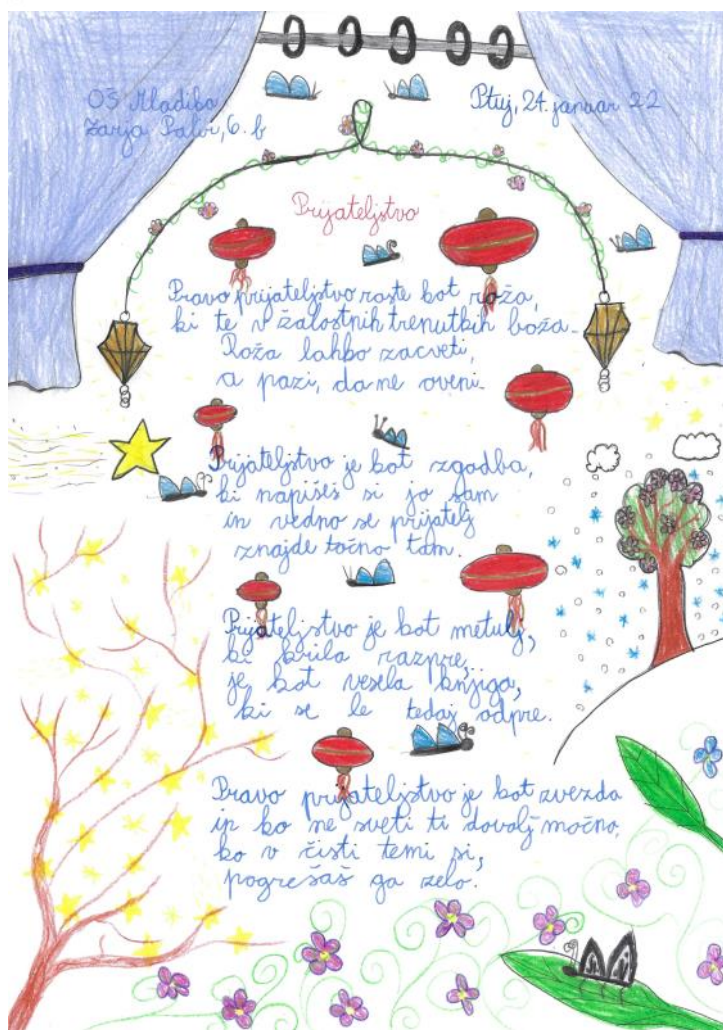 OŠ Mladika
Ptuj, 24. januar 22
Zarja Patir, 6. b
Prijateljstvo
Pravo prijateljstvo raste kot roža,
ki te v žalostnih trenutkih boža.
Roža lahko zacveti,
a pazi, da ne oveni.
Prijateljstvo je kot zgodba,
ki napišeš si jo sam
in vedno se prijatelj
znajde točno tam.
Prijateljstvo je kot metulj,
ki krila razpre,
je kot vesela knjiga,
ki se le tedaj odpre.
Pravo prijateljstvo je kot zvezda
in ko ne sveti ti dovolj močno,
ko v čisti temi si,
pogrešaš ga zelo.